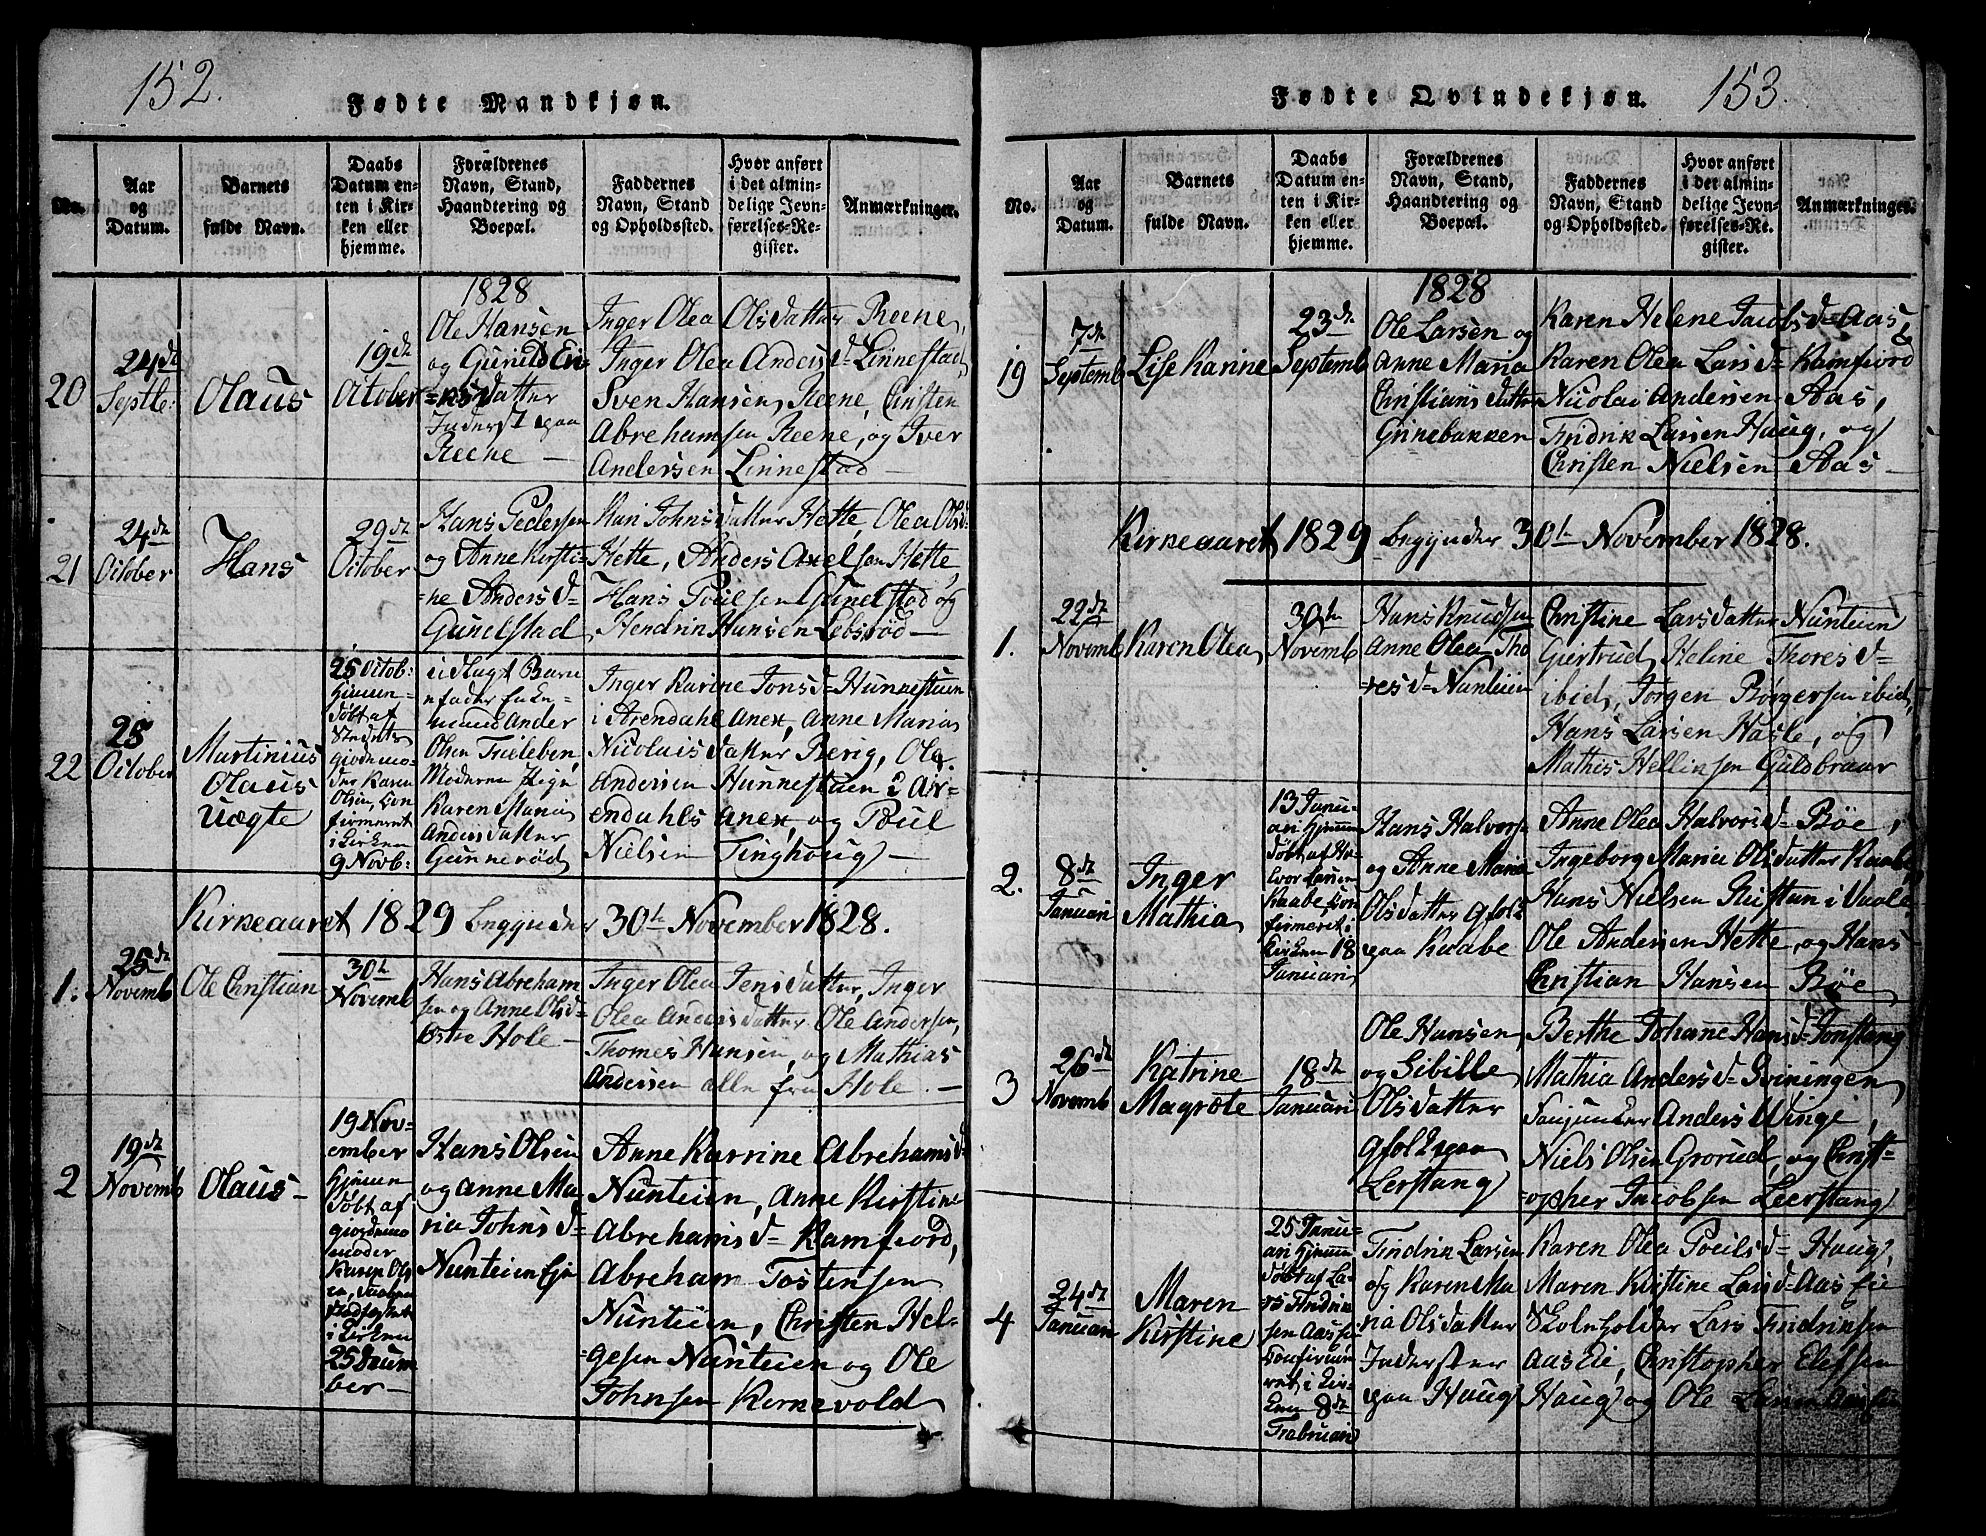 152.
Fødte Mandkjøn.
No.
Aar
og
Datum.
Barnets
fulde Navn.
Daabs
Datum en-
ten i Kir-
ken eller
hjemme.
Forældrenes
Navn, Stand,
Haandtering og
Boepæl.
Faddernes
Navn, Stand
og Opholdssted.
Hvor anført
i det almin-
delige Jevn-
førelses-Re-
gister.
Anmærkninger.
20
24de
Septbr:
Olaus
19de
October
1828
Ole Hansen
og Gunild Eri-
=ksdatter
Inderst paa
Reene —
Inger Olea Olsdatter Reene,
Inger Olea Andersd= Linnestad,
Sven Hansen Reene, Christen
Abrehamsen Reene, og Iver
Andersen Linnestad —
21
24de
October
Hans
29de
October
Hans Pedersen
og Anne Kirsti-
ne Andersd=
Gunelstad
Kari Johnsdatter Hette, Olea Olsd=
Hette, Anders Axelsen Hette,
Hans Poulsen Gunelstad og
Hendrik Hansen Lebsrød —
22
25
October
Martinius
Olaus
Uægte
25 Octob:
hjemme-
døbt af
giordemo-
der Karen
Olsen, con-
firmeret
i Kirken
9 Novb:
Olsen Trieleben,
Moderen Pige
Karen Maria
Andersdatter
Gunnerød
Inger Karine Jonsd= Hunnestuen
i Arendahl Anex, Anne Maria
Nicolaisdatter Berig, Ole
Andersen Hunnestuen i Ar-
endahls Anex, og Poul
Nielsen Tinghoug —
Kirkeaaret 1829 begynder 30te November 1828.
1.
25de
Novemb
Ole Christian
30te
Novemb
Hans Abreham
sen og Anne Olsd=
Østre Hole —
Inger Olea Jensdatter, Inger
Olea Andersdatter Ole Andersen,
Thomes Hansen, og Mathias
Andersen alle fra Hole. —
2
19de
Novemb
Olaus —
19 Nov-
ember
hjemme
døbt af
giordemo
moder
Karen Ols
i Kirken
25
ber —
Hans Olsen
og Anne Ma-
ria Johnsd=
Nunteien Eje
Anne Karrine Abrehamsd=
Nunteien, Anne Kirstine
Abrehamsd= Ramfiord,
Abreham Tostensen
Nunteien, Christen Hel-
=gesen Nunteien og Ole
Johnsen Kirkevold
153.
Fødte Qvindekjøn.
No.
Aar
og
Datum.
Barnets
fulde Navn.
Daabs
Datum en-
ten i Kir-
ken eller
hjemme.
Forældrenes
Navn, Stand,
Haandtering og
Boepæl.
Faddernes
Navn, Stand
og Opholdssted.
Hvor anført
i det almin-
delige Jevn-
førelses-Re-
gister.
Anmærkninger.
19
7de
Septemb
Lise Karine
23de
Septemb
1828
Ole Larsen og
Anne Maria
Christiansdatter
Grinebakken
Karen Helene Jacobsd= Aas
Karen Olea Larsd= Ramfiord
Nicolai Andersen Aas,
Fredrik Larsen Haug, og
Christen Nielsen Aas —
Kirkeaaret 1829 begynder 30te November 1828.
1.
22de
Novemb
Karen Olea
30te
Novemb
Hans Knudsen
Anne Olea Tho
resd= Nunteien
Christine Larsdatter Nunteien
Giertrud Heline Thoresd=
ibid, Jørgen Børgersen ibid,
Hans Larsen Hasle, og
Mathis Hellinsen Guldbraar
2.
8de
Januari
Inger
Mathia
13 Janu-
ari hjemme
døbt af Ha-
lvor Larsen
Kaabe, con
firmeret i
Kirken 18
Januari
Hans Halvors=
og Anne Maria
Olsdatter
paa Kaabe
Anne Olea Halvorsd= Bøe,
Ingeborg Maria Olsdatter Kaabe,
Hans Nielsen Ristun i Vaale,
Ole Andersen Hette, og Hans
Christian Hansen Bøe
3
26de
Novemb
Katrine
Magrete
18de
Januari
Ole Hansen,
og Sibille
Olsdatter
Lerstang
Berthe Johane Hansd= Tonstang
Mathia Andersd= Gviningen
Anders Winge,
Niels Olsen Grorud, og Christ-
=opher Jacobsen Leerstang
4
24de
Januari
Maren
Kirstine
25 Janu-
ari hjemme
døbt af La-
rs Fredrik
sen Aas
Confirme
ret i Kir-
ken 8de
Februari
Fredrik Larsen
og Karen Ma-
ria Olsdatter
Inderster
paa Haug
Karen Olea Poulsd= Haug,
Maren Kirstine Larsd= Aas Eie
Skoleholder Lars Fredriksen
Aas Eie, Christopher Elefsen
Haug og Ole Larsen